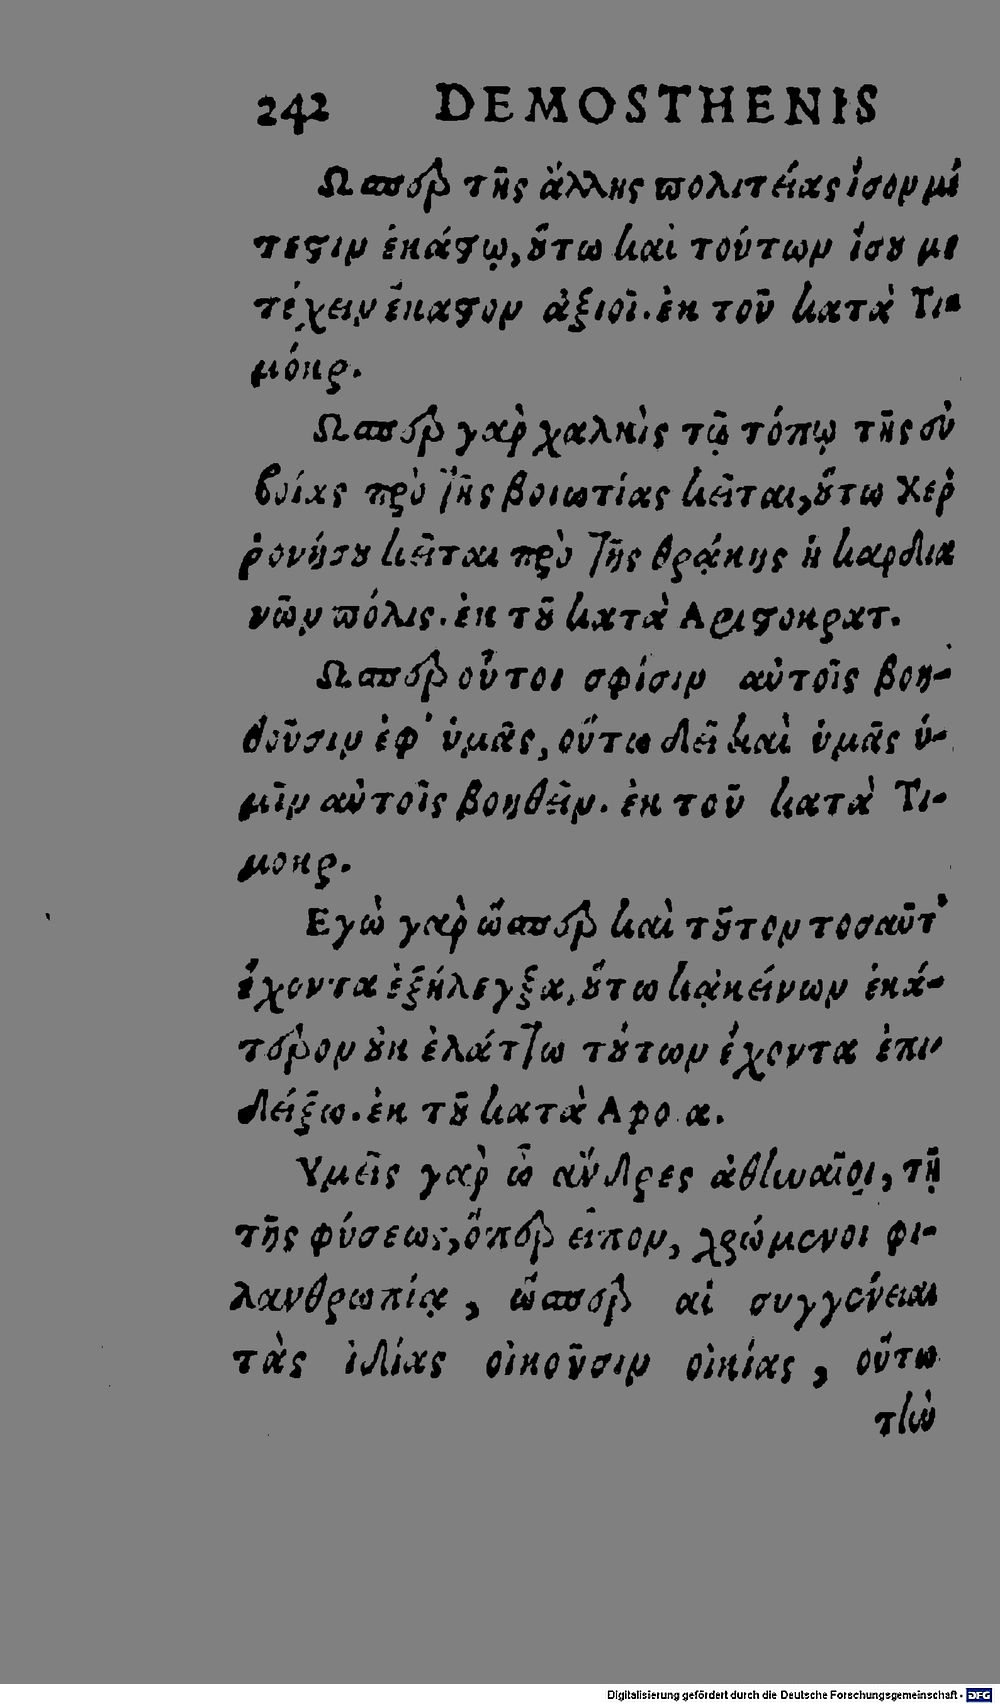 242 DEMOSTHENIS
Ωσπερ τῆς ἄλλης πολιτείας ἴσον μέ
τεστιν ἑκάστῳ, οὕτω καὶ τούτων ἴσου με
τέχειν ἕκαστον ἀξιοῖ. ἐκ τοῦ κατὰ Τι-
μόκρ.
Ωσπερ γὰρ χαλκὶς τῷ τόπῳ τῆς εὐ
βοίας πρὸ τῆς βοιωτίας κεῖται, οὕτω Χερ
ῥονήσου κεῖται πρὸ τῆς θρᾴκης ἡ καρδια
νῶν πόλις. ἐκ τοῦ κατὰ Αριστοκρατ.
Ωσπερ οὗτοι σφίσιν αὐτοῖς βοη-
θοῦσιν ἐφ' ὑμᾶς, οὕτω δεῖ καὶ ὑμᾶς ὑ-
μῖν αὐτοῖς βοηθεῖν. ἐκ τοῦ κατὰ Τι-
μοκρ.
Εγὼ γὰρ ὥσπερ καὶ τοῦτον τοσαῦτ'
ἔχοντα ἐξήλεγξα, οὕτω κἀκείνων ἑκά-
τερον οὐκ ἐλάττω τούτων ἔχοντα ἐπι-
δείξω. ἐκ τοῦ κατὰ Αφο. α.
Υμεῖς γὰρ ὦ ἄνδρες ἀθηναῖοι, τῇ
τῆς φύσεως, ὅπερ εἶπον, χρώμενοι φι-
λανθρωπίᾳ, ὥσπερ αἱ συγγένειαι
τὰς ἰδίας οἰκοῦσιν οἰκίας, οὕτω
τὴν
Digitalisierung gefördert durch die Deutsche Forschungsgemeinschaft - DFG